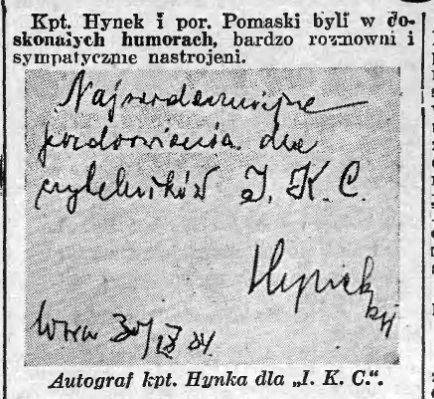 Kpt. Hynek i por. Pomaski byli w do-
skonałych humorach, bardzo rozmowni i
sympatycznie nastrojeni.
Najserdeczniejsze
pozdrowienia dla
czytelników I. K. C.
Hynek
30/IX 34
Autograf kpt. Hynka dla „I. K. C.".